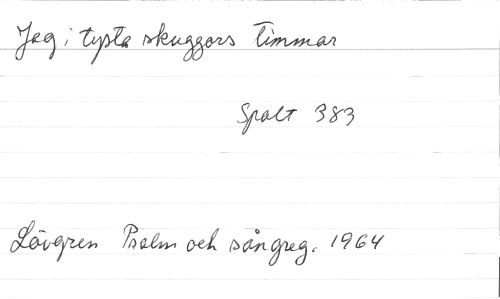 Jag i tysta skuggors timmar
Spalt 383
Lövgren Psalm och sångreg. 1964